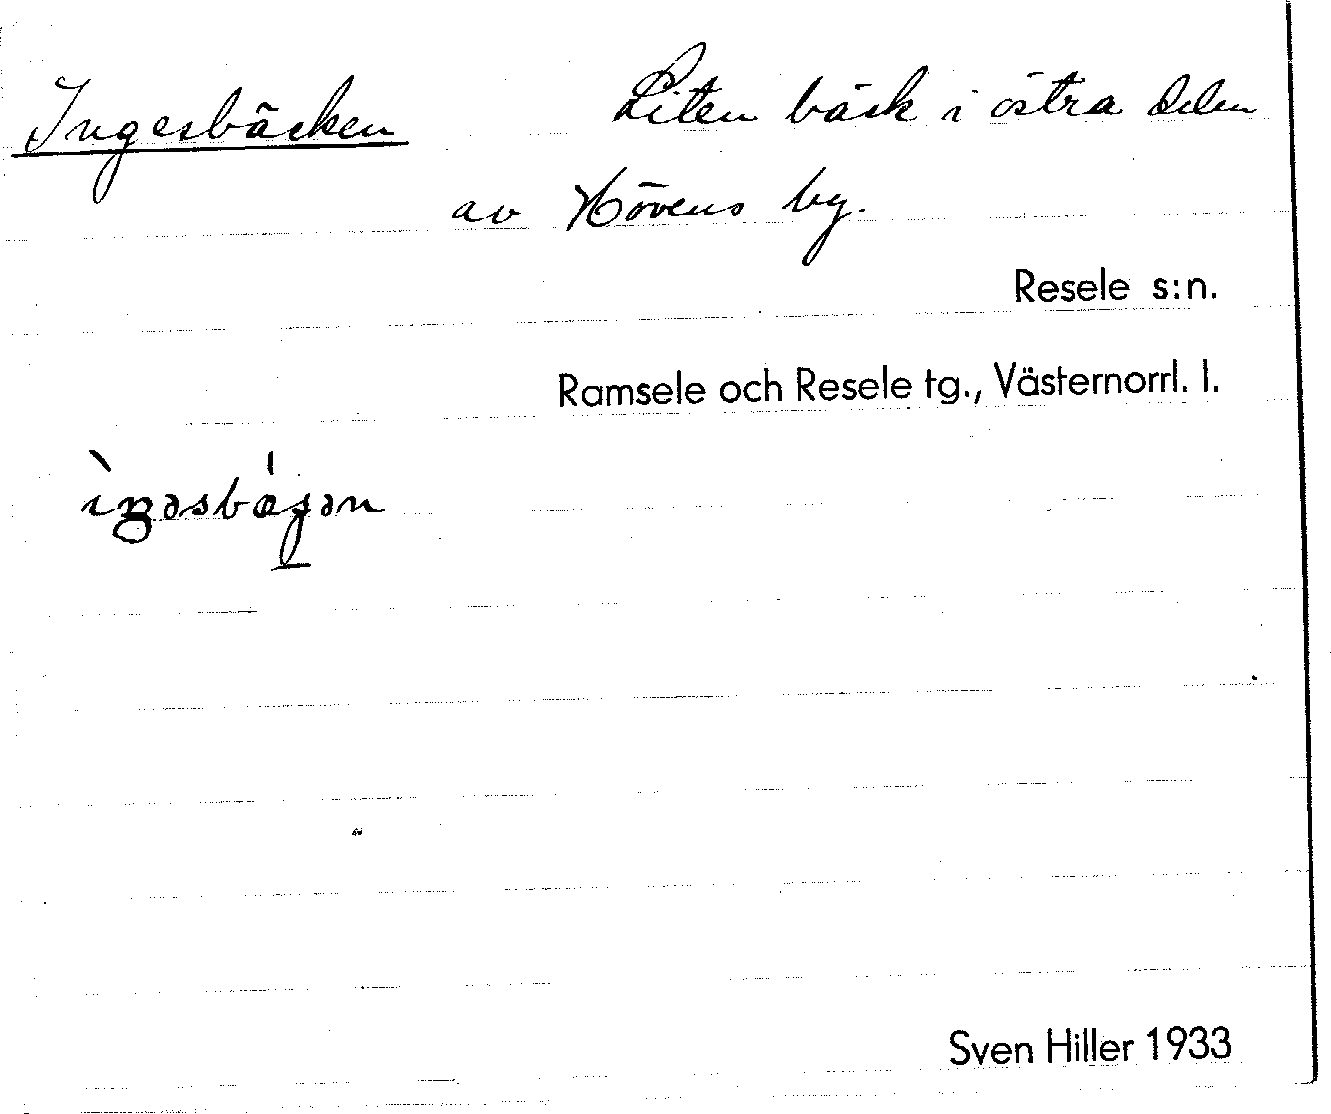 Ingesbäcken Liten bäck i östra delen
av Hövens by.
Resele s:n.
Ramsele och Resele tg., Västernorrl. l.
Sven Hiller 1933